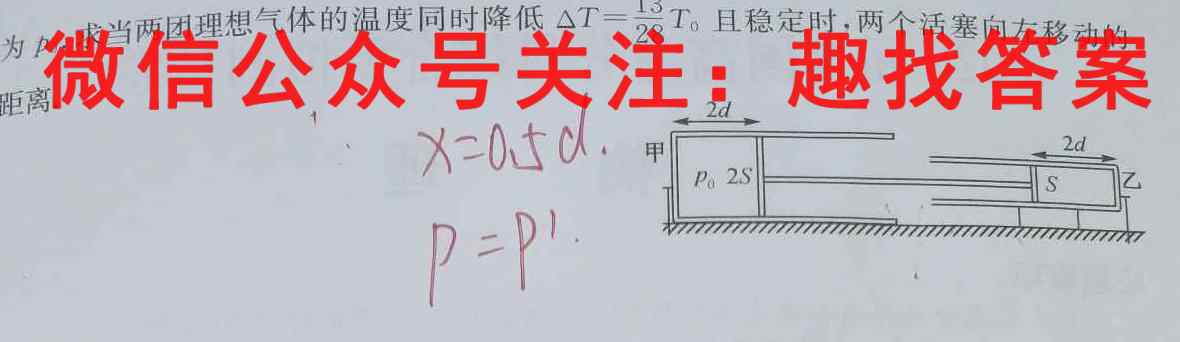 为 p 求当两团理想气体的温度同时降低 ΔT=13/28 T₀ 且稳定时,两个活塞向左移动的
距离
微信公众号关注:趣找答案
x=0.5d.
p=p'.
2d
甲
p₀ 2S
2d
S
乙